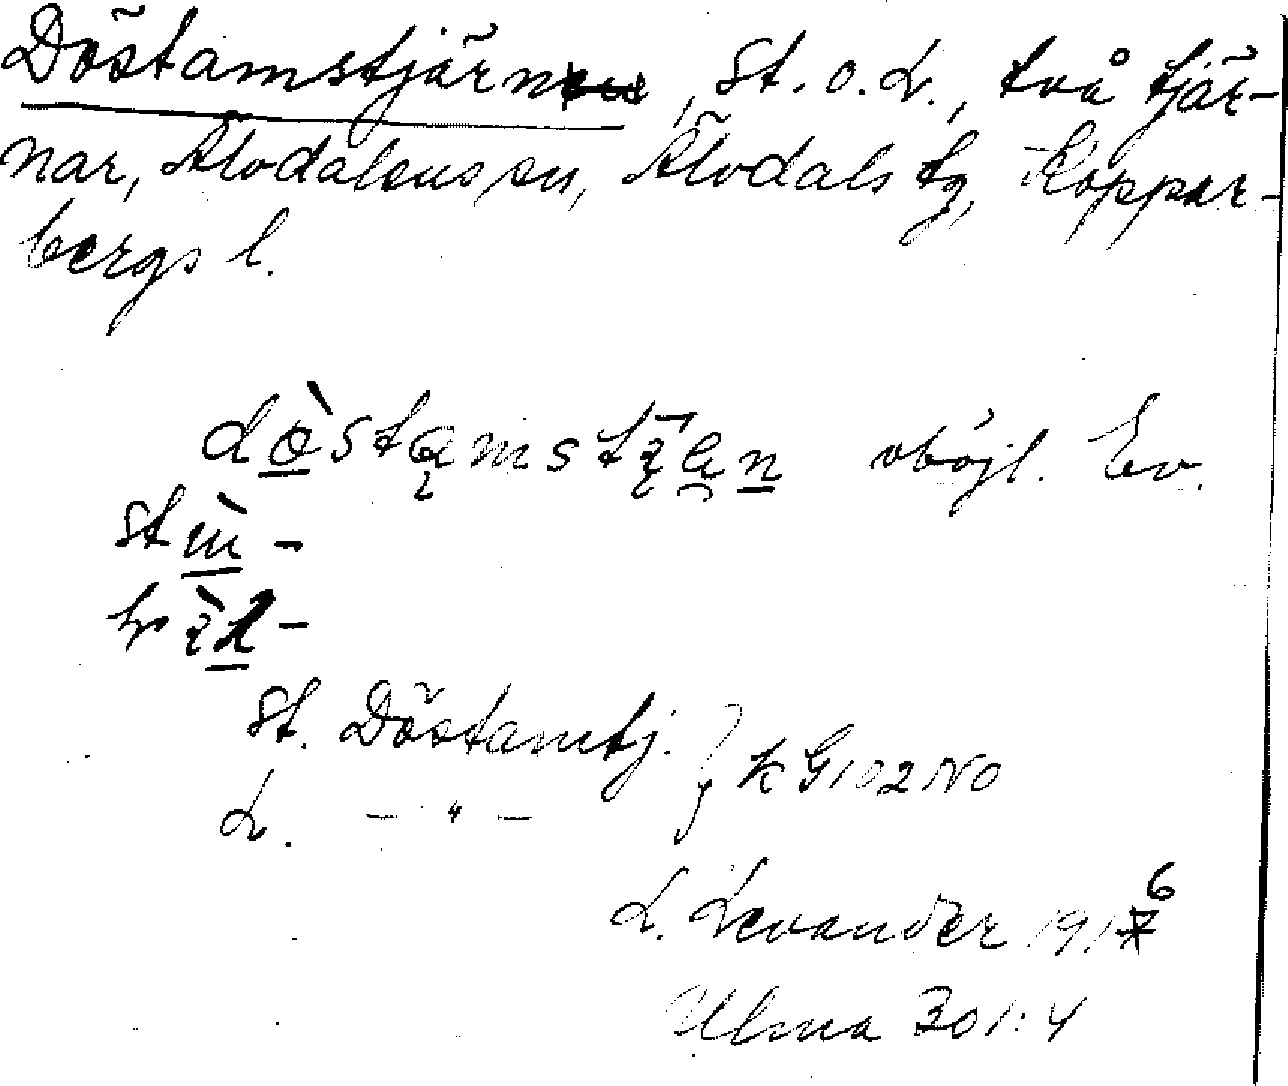 Döstamstjärn, St. o. L., två tjär-
nar, Älvdalens sn, Älvdals tg, Koppar-
bergs l.
oböjl. Ev.
St. Döstamtj. } K G 102 NO
L. — " —
L. Levander 1916
Ulma 301:4